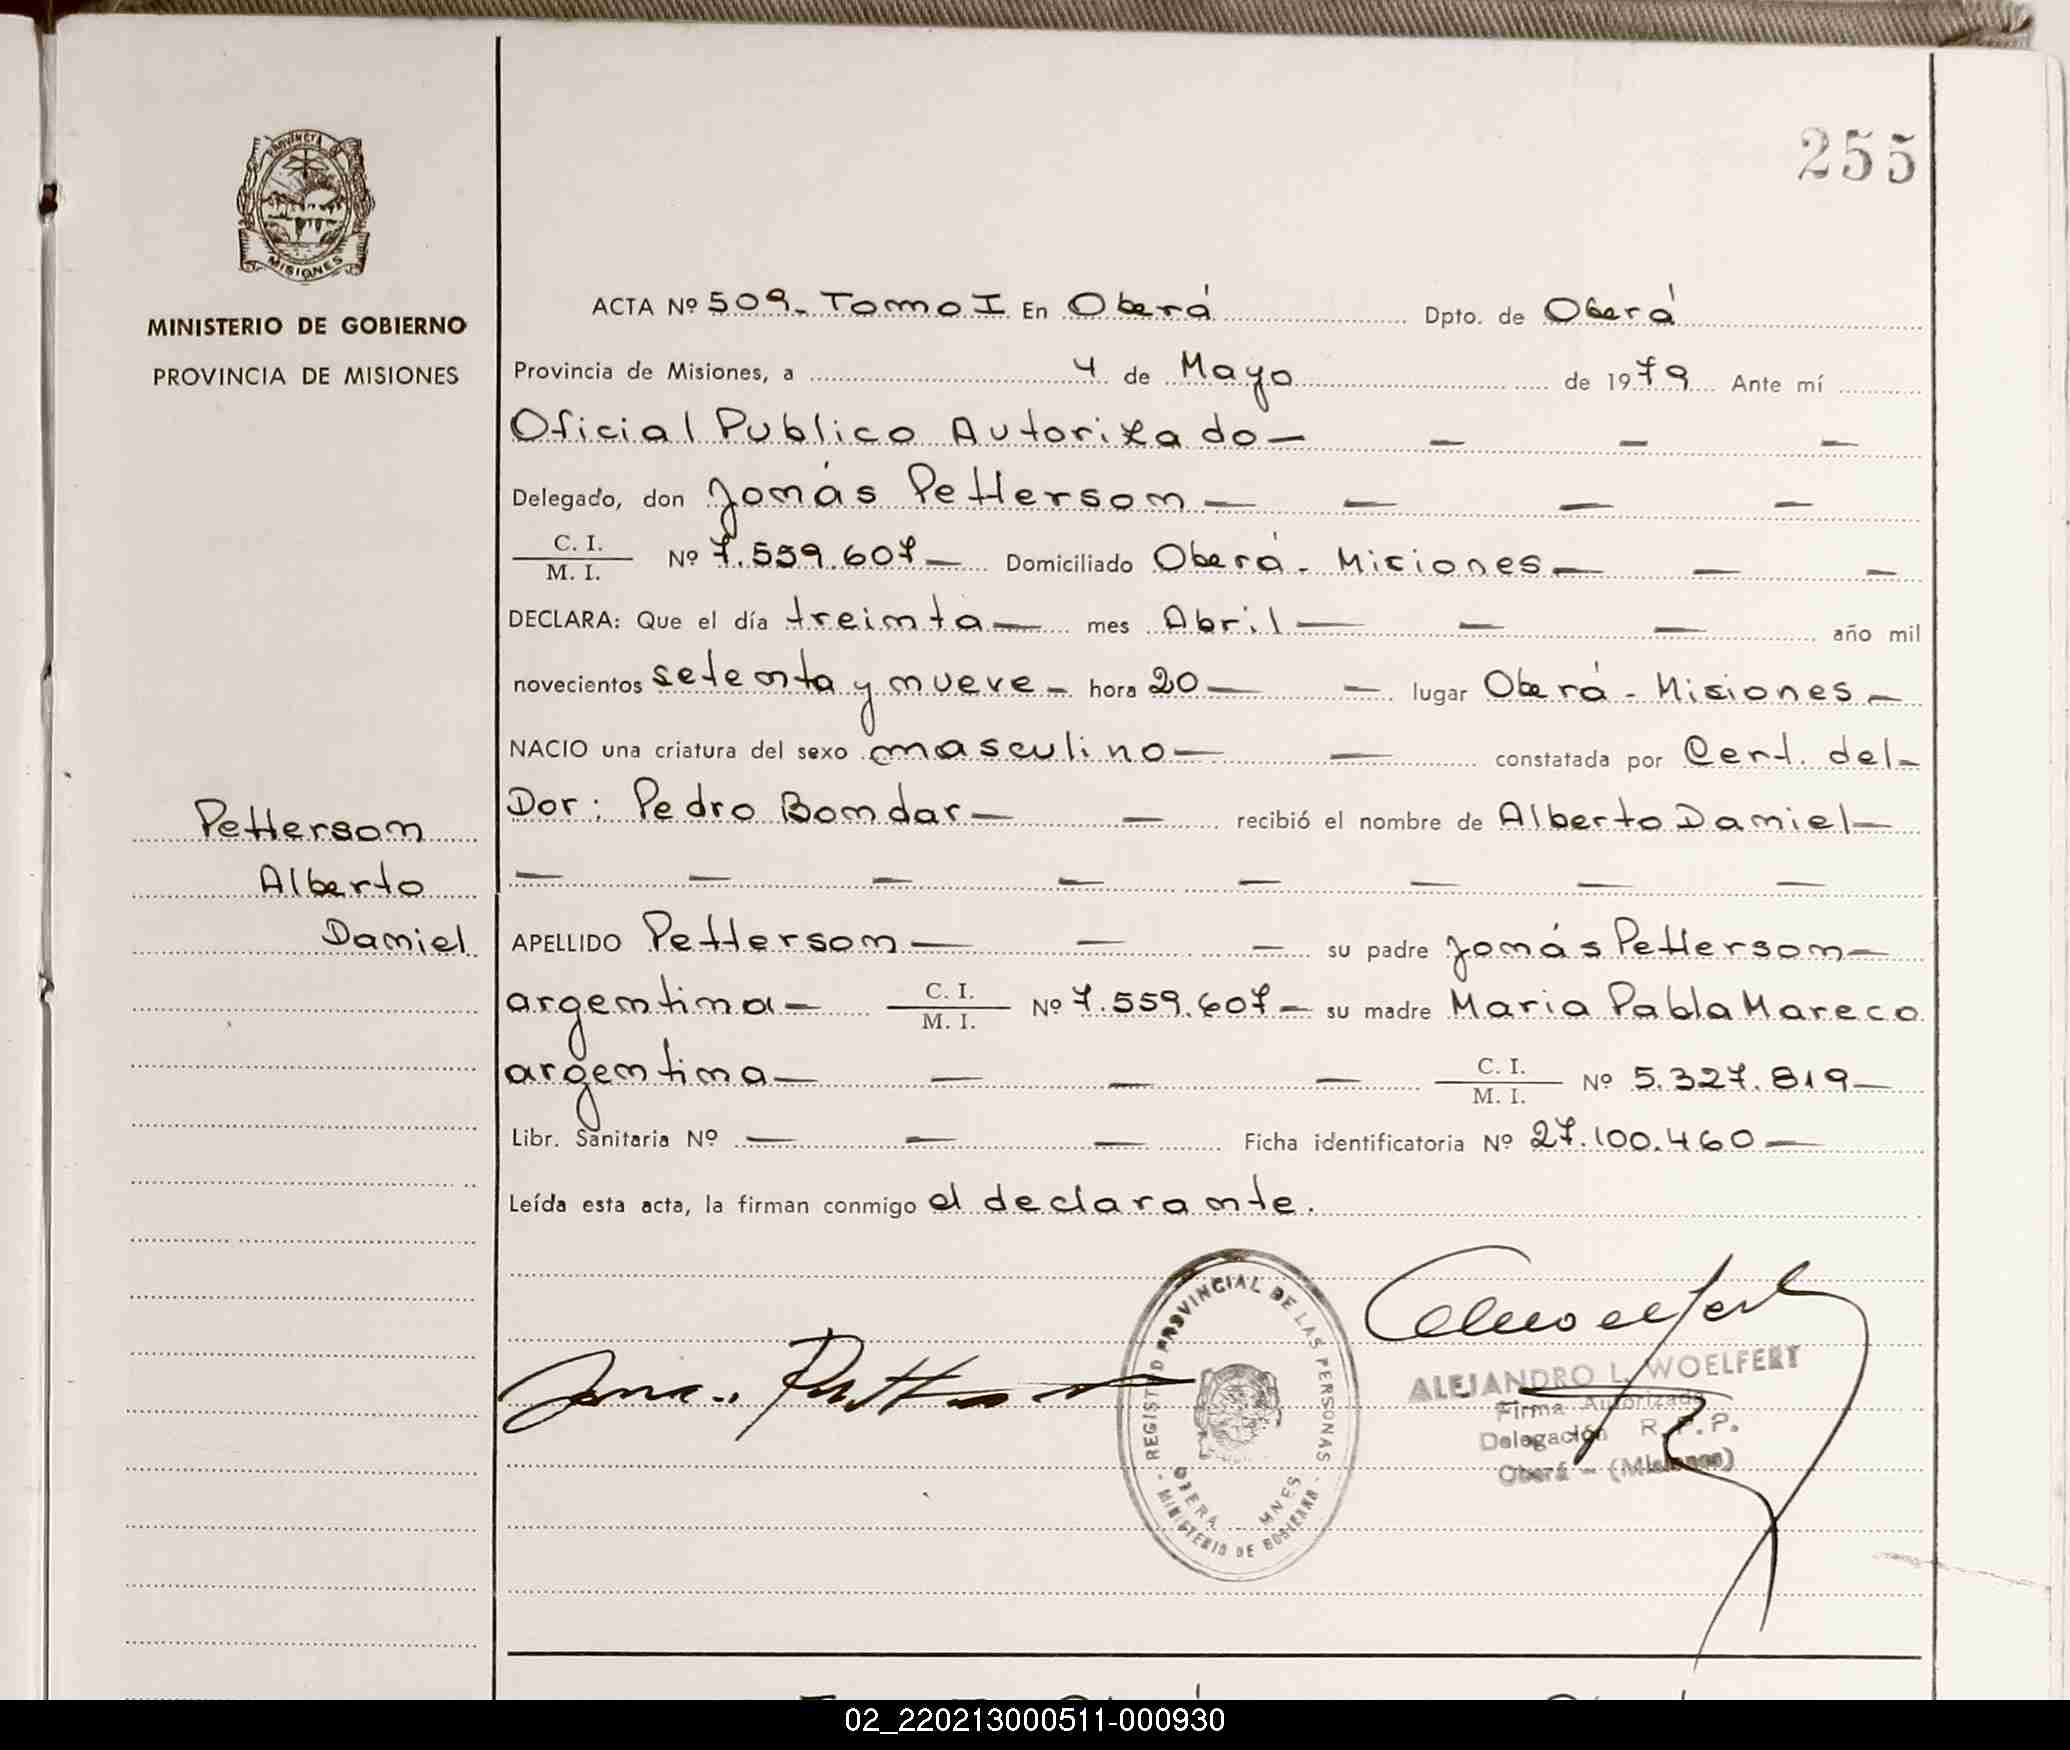 255
PROVINCIA DE
MISIONES
MINISTERIO DE GOBIERNO
PROVINCIA DE MISIONES
ACTA Nº 509- Tomo I En Oberá Dpto. de Oberá
Provincia de Misiones, a 4 de Mayo de 1979 Ante mí
Oficial Publico Autorizado — — — —
Delegado, don Jomás Petterson — — — —
C. I. / M. I. Nº 7.559.607— Domiciliado Oberá - Misiones — — —
DECLARA: Que el día treinta — mes Abril — — — año mil
novecientos setenta y nueve — hora 20 — — lugar Oberá - Misiones —
NACIO una criatura del sexo masculino — — constatada por Cert. del-
Dor: Pedro Bondar — — recibió el nombre de Alberto Daniel —
— — — — — — — —
Petterson
Alberto
Daniel
APELLIDO Petterson — — — su padre Jomás Petterson —
argentina — C. I. / M. I. Nº 7.559.607 — su madre Maria Pabla Mareco
argentina — — — — C. I. / M. I. Nº 5.327.819 —
Libr. Sanitaria Nº — — — Ficha identificatoria Nº 27.100.460 —
Leída esta acta, la firman conmigo el declarante.
REGISTRO PROVINCIAL DE LAS PERSONAS
OBERA - MNES
MINISTERIO DE GOBIERNO
ALEJANDRO L. WOELFERT
Firma Autorizada
Delegación R.P.P.
Oberá - (Misiones)
02_220213000511-000930